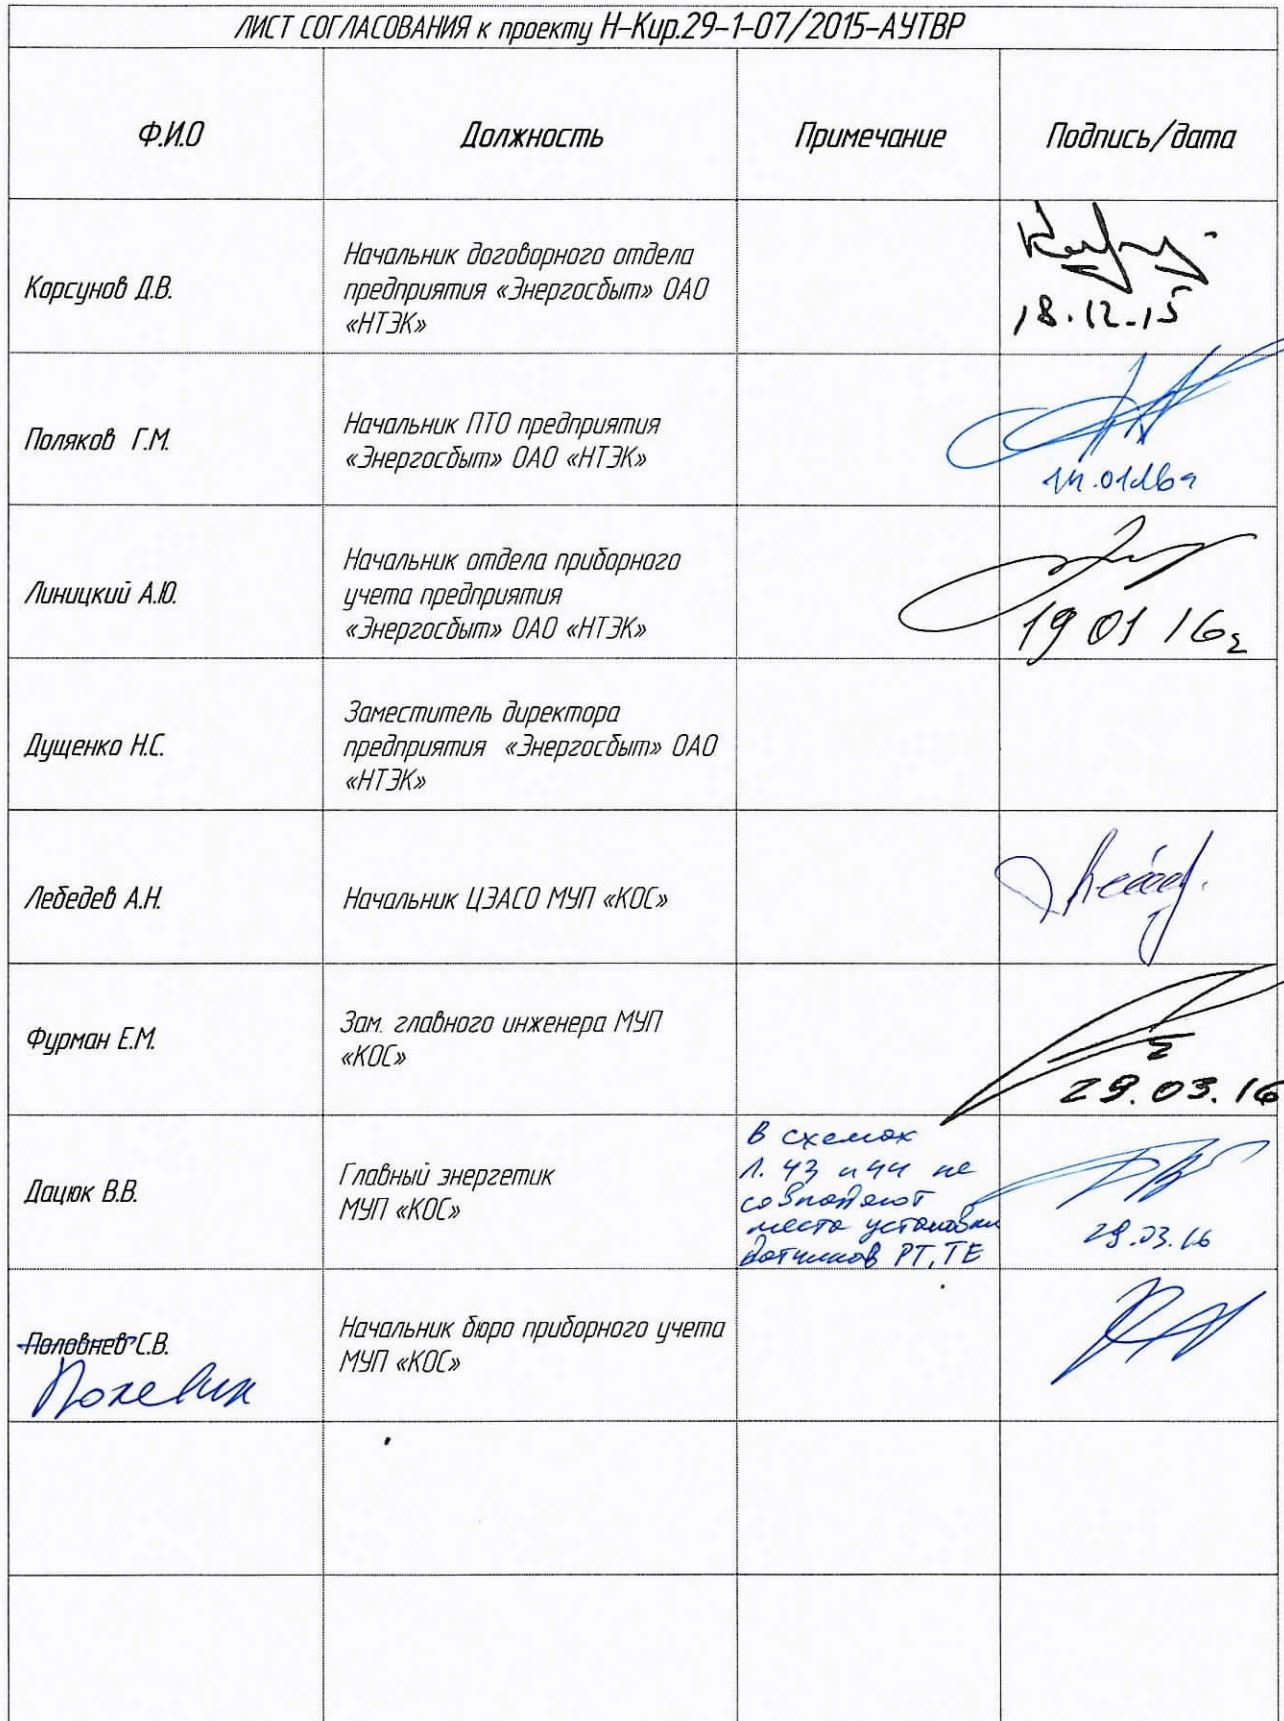 ЛИСТ СОГЛАСОВАНИЯ к проекту Н-Кир.29-1-07/2015-АУТВР
Ф.И.О Должность Примечание Подпись/дата
Корсунов Д.В.
Начальник договорного отдела
предприятия «Энергосбыт» ОАО
«НТЭК»
18.12.15
Поляков Г.М.
Начальник ПТО предприятия
«Энергосбыт» ОАО «НТЭК»
Линицкий А.Ю.
Начальник отдела приборного
учета предприятия
«Энергосбыт» ОАО «НТЭК»
19 01 16г
Дущенко Н.С.
Заместитель директора
предприятия «Энергосбыт» ОАО
«НТЭК»
Лебедев А.Н.
Начальник ЦЭАСО МУП «КОС»
Фурман Е.М.
Зам. главного инженера МУП
«КОС»
29.03.16
Дацюк В.В.
Главный энергетик
МУП «КОС»
В схемах
Л. 43 и 44 не
совпадают
места установки
датчиков РТ, ТЕ
29.03.16
Половнев С.В.
Начальник бюро приборного учета
МУП «КОС»